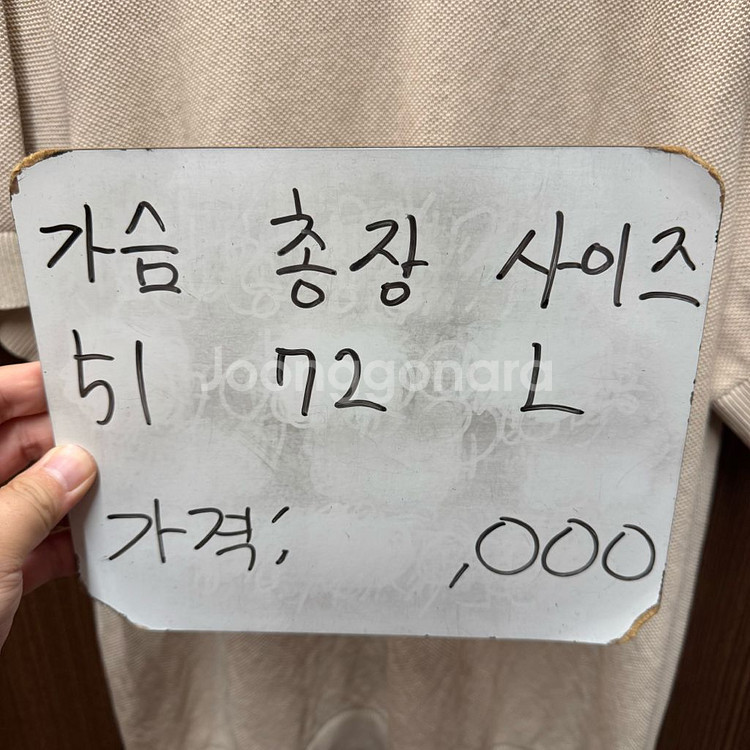 가슴 총장 사이즈
51 72 L
Joonggonara
가격: ,000